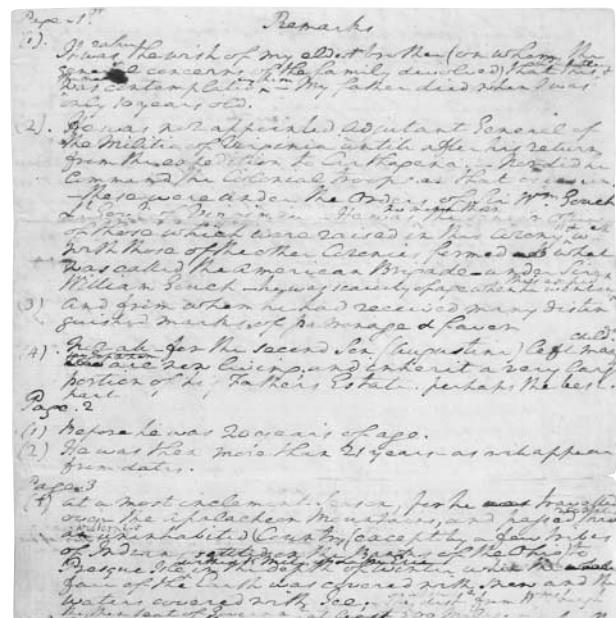 Page 1st
Remarks
(1).
It was rather the wish of my eldest brother (on whom the
general concerns of the family devolved) that this
was contemplated My father died when I was
only 10 years old.
(2). He was not appointed Adjutant General of
the Militia of Virginia untill after his return
from the expedition to Carthagena. Nor did he
Command the Colonial troops on that occasion
these were under the Orders of Sir Wm Gouch
of those which were raised in this Colony
with those of the other Colonies formed what
was called the American Brigade under Sir
William Gouch he was scarcely of age when
(3) And from whom he had received many distin
guished marks of patronage & favor
(4). Not all for the second Son (Augustine) left many child
are now living and inherit a very large
portion of his Fathers Estate. perhaps the best
part
Page. 2
(1) Before he was 20 years of age.
(2) He was then more than 21 years as will appear
from dates.
Page. 3
(4) at a most inclement Season, for he travelled
over the Apalacheon Mountains, and passed
an uninhabited Country (except by a few tribes
of Indians settled on the Banks of the Ohio) to
Presque Isle of winter when the
face of the Earth was covered with Snow and the
waters covered with Ice;